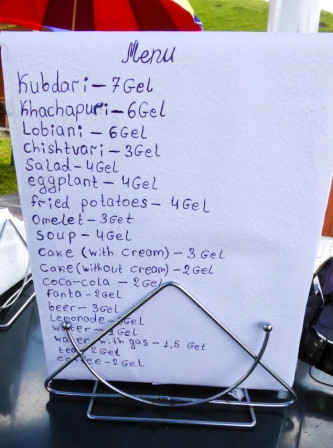 Menu
Kubdari - 7Gel
Khachapuri - 6Gel
Lobiani - 6Gel
Chishtvari - 3Gel
Salad - 4Gel
eggplant - 4Gel
fried potatoes - 4Gel
Omelet - 3Get
Soup - 4Gel
Cake (with cream) - 3 Gel
Cake (without cream) - 2Gel
Coca-cola - 2Gel
fanta - 2Gel
beer - 3Gel
Lemonade - Gel
water - 1Gel
water with gas - 1,5 Get
tea 2Gel
coffee - 2Gel